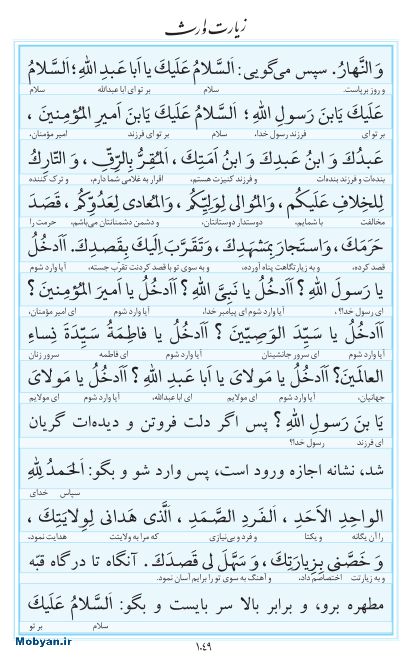 زیارت وارث
وَ النَّهارُ. سپس می‌گویی: اَلسَّلامُ عَلَیكَ یا اَبا عَبدِ اللهِ؛ اَلسَّلامُ
و روز برپاست. سلام بر تو ای اباعبدالله سلام
عَلَیكَ یَابنَ رَسولِ اللهِ؛ اَلسَّلامُ عَلَیكَ یَابنَ اَمیرِ المُؤمِنینَ ،
بر تو ای فرزند رسول خدا، سلام بر تو ای فرزند امیر مؤمنان،
عَبدُكَ وَ ابنُ عَبدِكَ وَ ابنُ اَمَتِكَ ، اَلمُقِرُّ بِالرِّقِّ ، وَ التّارِكُ
بنده‌ات و فرزند بنده‌ات و فرزند کنیزت هستم، اقرار به غلامی شما دارم، و ترک کننده
لِلخِلافِ عَلَیكُم ، وَ المُوالی لِوَلِیِّكُم ، وَ المُعادی لِعَدُوِّكُم ، قَصَدَ
مخالفت با شمایم، دوستدار دوستانتان، و دشمن دشمنانتان می‌باشم، حرمت را
حَرَمَكَ ، وَاستَجارَ بِمَشهَدِكَ ، وَ تَقَرَّبَ اِلَیكَ بِقَصدِكَ. اَاَدخُلُ
قصد کرده، و به زیارتگاهت پناه آورده، و به سوی تو با قصد کردنت تقرّب جسته، آیا وارد شوم
یا رَسولَ اللهِ ؟ اَاَدخُلُ یا نَبِیَّ اللهِ ؟ اَاَدخُلُ یا اَمیرَ المُؤمِنینَ ؟
ای رسول خدا؟ ، آیا وارد شوم ای پیامبر خدا، آیا وارد شوم ای امیر مؤمنان،
اَاَدخُلُ یا سَیِّدَ الوَصِیّینَ ؟ اَاَدخُلُ یا فاطِمَةُ سَیِّدَةَ نِساءِ
آیا وارد شوم ای سرور جانشینان آیا وارد شوم ای فاطمه سرور زنان
العالَمینَ؟ اَاَدخُلُ یا مَولایَ یا اَبا عَبدِ اللهِ ؟ اَاَدخُلُ یا مَولایَ
جهانیان، آیا وارد شوم ای مولایم ای اباعبدالله، آیا وارد شوم ای مولایم
یَا بنَ رَسولِ اللهِ ؟ پس اگر دلت فروتن و دیده‌ات گریان
ای فرزند رسول خدا؟
شد، نشانه اجازه ورود است، پس وارد شو و بگو: اَلحَمدُ لِلهِ
سپاس خدای
الواحِدِ الاَحَدِ ، اَلفَردِ الصَّمَدِ ، اَلَّذی هَدانی لِوِلایَتِكَ ،
را آن یگانه و یکتا و فرد و بی‌نیازی که مرا به ولایتت هدایت نمود،
وَ خَصَّنی بِزِیارَتِكَ ، وَ سَهَّلَ لی قَصدَكَ . آنگاه تا درگاه قبّه
و به زیارتت اختصاصم داد، و آهنگ به سوی تو را برایم آسان نمود.
مطهره برو، و برابر بالا سر بایست و بگو: اَلسَّلامُ عَلَیكَ
سلام بر تو
۱۰۴۹
Mobyan.ir